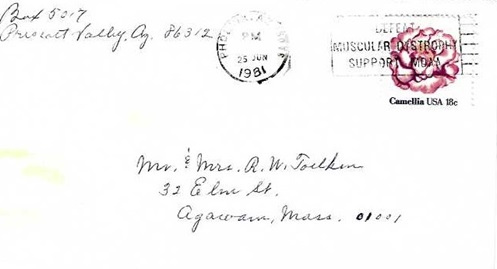 Box 5017
Prescott Valley, Az. 86312
PM
25 JUN
1981
DEFEAT
MUSCULAR DYSTROPHY
SUPPORT MDAA
Camellia USA 18c
Mr. & Mrs. R. W. Toelken
32 Elm St.
Agawam, Mass. 01001